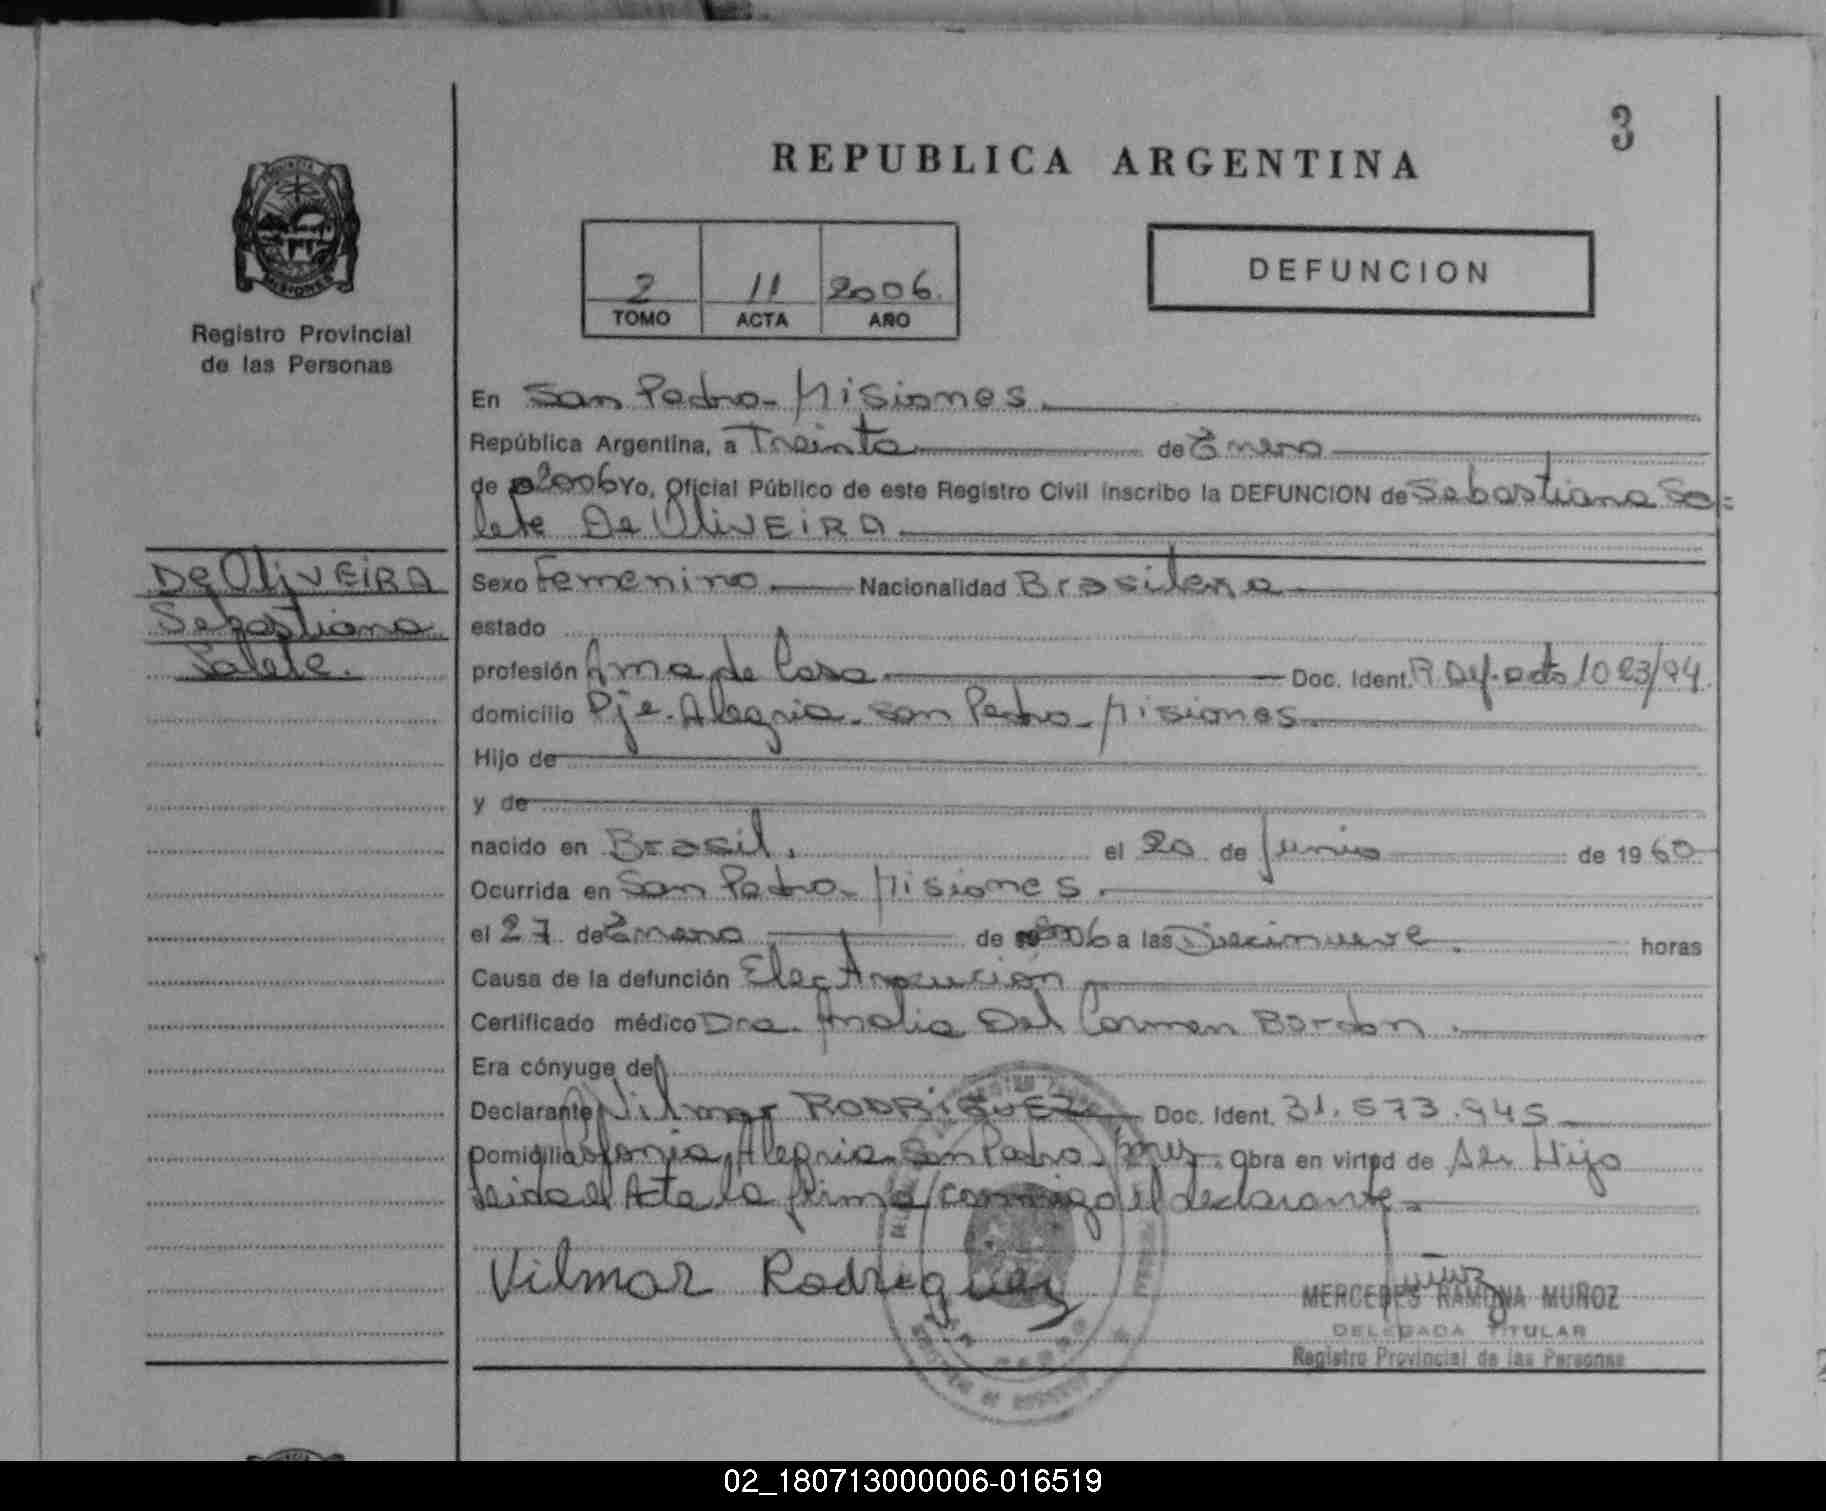 3
REPUBLICA ARGENTINA
2 11 2006.
TOMO ACTA AÑO
DEFUNCION
MISIONES
Registro Provincial
de las Personas
En San Pedro - Misiones
República Argentina, a Treinta de Enero
de 2006 Yo, Oficial Público de este Registro Civil inscribo la DEFUNCION de Sebastiana Sa=
lete De OLIVEIRA
De OLIVEIRA
Sebastiana
Salete.
Sexo Femenino Nacionalidad Brasileña
estado
profesión Ama de Casa Doc. Ident. P. Def. acta 1023/94.
domicilio Pje. Alegria - San Pedro - Misiones.
Hijo de
y de
nacido en Brasil. el 20 de Junio de 1960
Ocurrida en San Pedro - Misiones.
el 27 de Enero de 2006 a las Diecinueve. horas
Causa de la defunción Electrocución
Certificado médico Dra. Analia Del Carmen Bordon.
Era cónyuge de
Declarante Vilmar RODRIGUEZ Doc. Ident. 31.573.945
Domicilio Colonia Alegria - San Pedro - Mnes. Obra en virtud de Ser Hijo
Leida el Acta la firma conmigo el declarante.
Vilmar Rodriguez
MERCEDES RAMONA MUÑOZ
DELEGADA TITULAR
Registro Provincial de las Personas
02_180713000006-016519